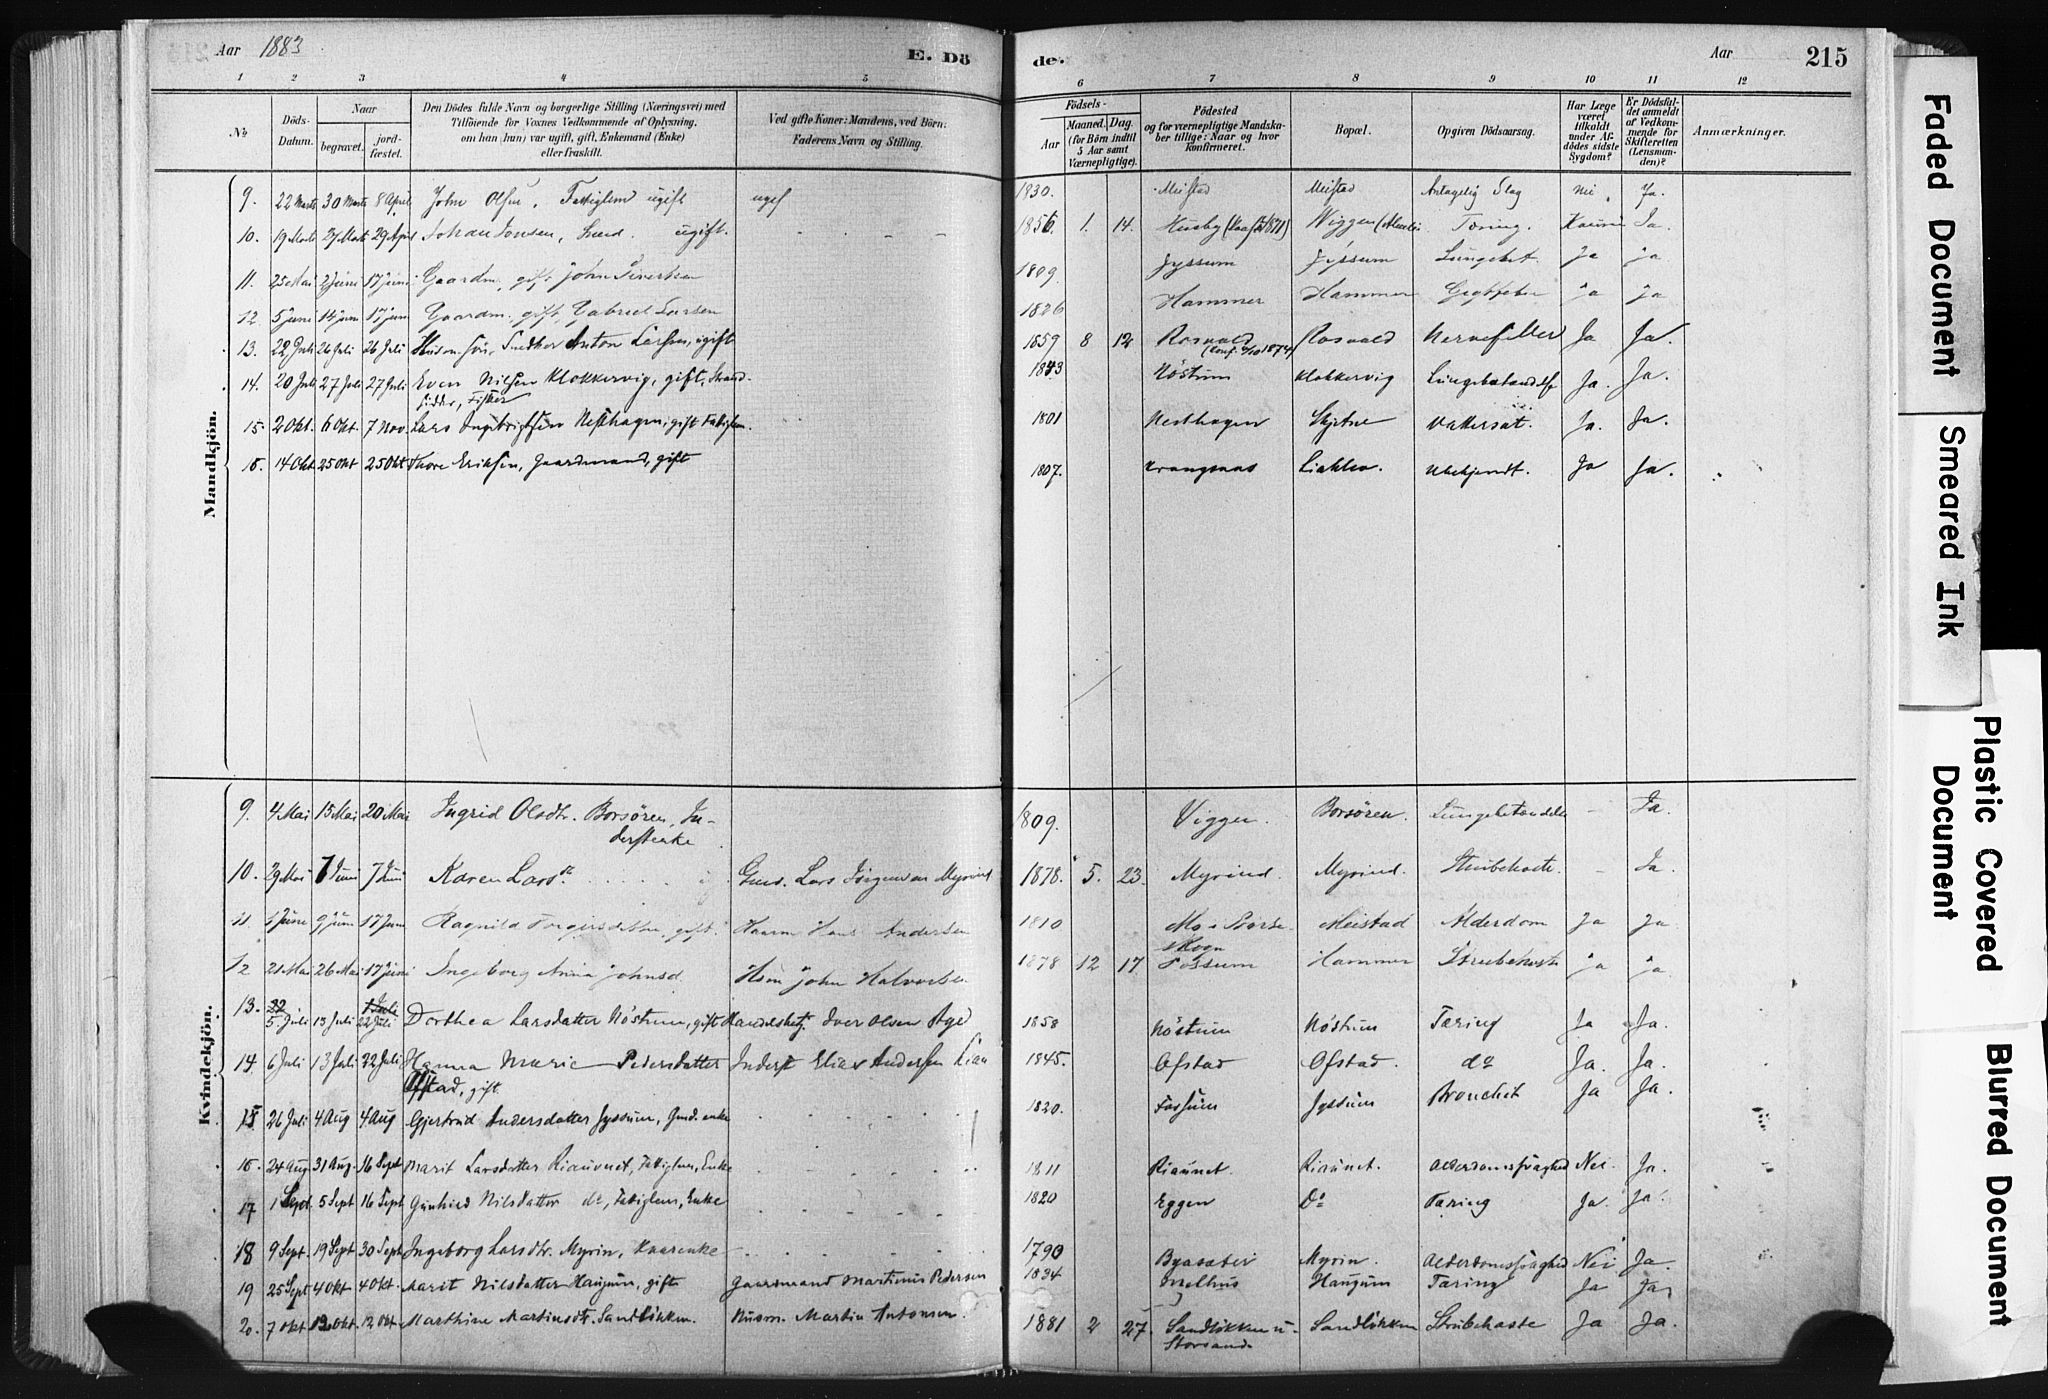 Aar 1883
E. Dö
de.
Aar
215
1 2 3 4 5 6 7 8 9 10 11 12
№
Döds-Datum.
Naar
begravet.
jord-fæstet.
Den Dödes fulde Navn og borgerlige Stilling (Næringsvei) med
Tilföiende for Voxnes Vedkommende af Oplysning,
om han (hun) var ugift, gift, Enkemand (Enke)
eller fraskilt.
Ved gifte Koner: Mandens, ved Börn:
Faderens Navn og Stilling.
Födsels-
Aar
Maaned. Dag.
(for Börn indtil
5 Aar samt
Værnepligtige).
Födested
og for værnepligtige Mandska-
ber tillige: Naar og hvor
Konfirmeret.
Bopæl.
Opgiven Dödsaarsag.
Har Læge
været
tilkaldt
under Af-
dödes sidste
Sygdom?
Er Dödsfal-
det anmeldt
af Vedkom-
mende for
Skifteretten
(Lensman-
den)?
Anmærkninger.
Mandkjön.
9. 22 Marts 30 Marts 8 April John Olsen, Fattiglem ugift 1830. Meistad Meistad Antagelig Slag Nei Ja.
10. 19 Marts 27 Marts 29 April Johan Jonsen, ugift. 1856 1. 14. Husby Wiggen Tæring. Ja.
11. 25 Mai 2 Juni 17 Juni Gaardm, gift, John Sivertsen 1809 Jyssum Jyssum Lungebet. Ja Ja
12 5 Juni 14 Juni 17 Juni Gaardm, gift, Gabriel Larsen 1826 Hammer Hammer Ja Ja
13. 22 Juli 26 Juli 26 Juli Anton Larsen, ugift 1859 8 12 Rosvold Rosvold Nervefeber Ja Ja.
14. 20 Juli 27 Juli 27 Juli Even Nilsen Klokkervig, gift, Strand-
sidder, Fisker 1843 Nöstum Klokkervig Ja. Ja.
15. 2 Okt. 6 Okt. 7 Nov. Lars Ingebrigtsen Nesthagen, gift Fattiglem. 1801 Nesthagen Skjetne Vattersot. Ja. Ja.
16. 14 Okt 25 Okt 25 Okt Thore Eriksen, Gaardmand, gift 1807. Liaklev. Ubekjendt. Ja Ja.
Kvindekjön.
9. 4 Mai 15 Mai 20 Mai Ingrid Olsdtr. Borsören, In-
derstenke 1809. Viggen. Borsören. Lungebetændelse - Ja.
10. 29 Mai 7 Juni 7 Juni Karen Larsdtr. Lars Jörgensen Myrind 1878. 5. 23. Myrind. Myrind. Strubehoste. - Ja.
11 1 Juni 9 Juni 17 Juni Ragnild gift. Hans Andersen 1810 Mo i Börse
Skogn Meistad Alderdom Ja Ja
12 21 Mai 26 Mai 17 Juni Ingeborg Anna Johnsd. Hsm John Halvorsen 1878 12 17 Fossum Hammer Strubehoste Ja Ja.
13. 5. Juli 13 Juli 22 Juli Dorthea Larsdatter Nöstum, gift Iver Olsen 1858 Nöstum Nöstum Tæring Ja Ja.
14. 6 Juli 13 Juli 22 Juli Hanna Marie Pedersdatter
Ofstad, gift. Inderst Elias Andersen 1845. Ofstad Ofstad. do Ja. Ja.
15 26 Juli 4 Aug 4 Aug Gjertrud Andersdatter Jyssum, Gmd. enke 1820. Fossum Jyssum Bronchit Ja Ja.
16. 24 Aug 31 Aug. 16 Sept Marit Larsdatter Riaunet, Fattiglem, Enke 1811 Riaunet. Riaunet. Alderdomssvaghed Nei. Ja.
17 1 Sept. 5 Sept 16 Sept Gunhild Nilsdatter do, Fattiglem, Enke 1820 Eggen Do Tæring Ja. Ja.
18 9 Sept. 19 Sept 30 Sept Ingeborg Larsdtr. Myrin, Kaarenke 1790 Byasæter Myrin. Alderdomssvaghed Nei Ja.
19 25 Sept 4 Okt 4 Okt. Marit Nilsdatter Haugum, gift Gaardmand Martinus Pedersen 1834 Melhus Haugum Tæring Ja Ja.
20. 7 Okt 12 Okt. 12 Okt Marthine Martinsdtr. Sandlökken. Husm. Martin Antonsen. 1881 2 27. Sandlökken u.
Storsand Sandlökken Strubehoste Ja Ja.
Faded Document
Smeared Ink
Plastic Covered
Document
Blurred Document